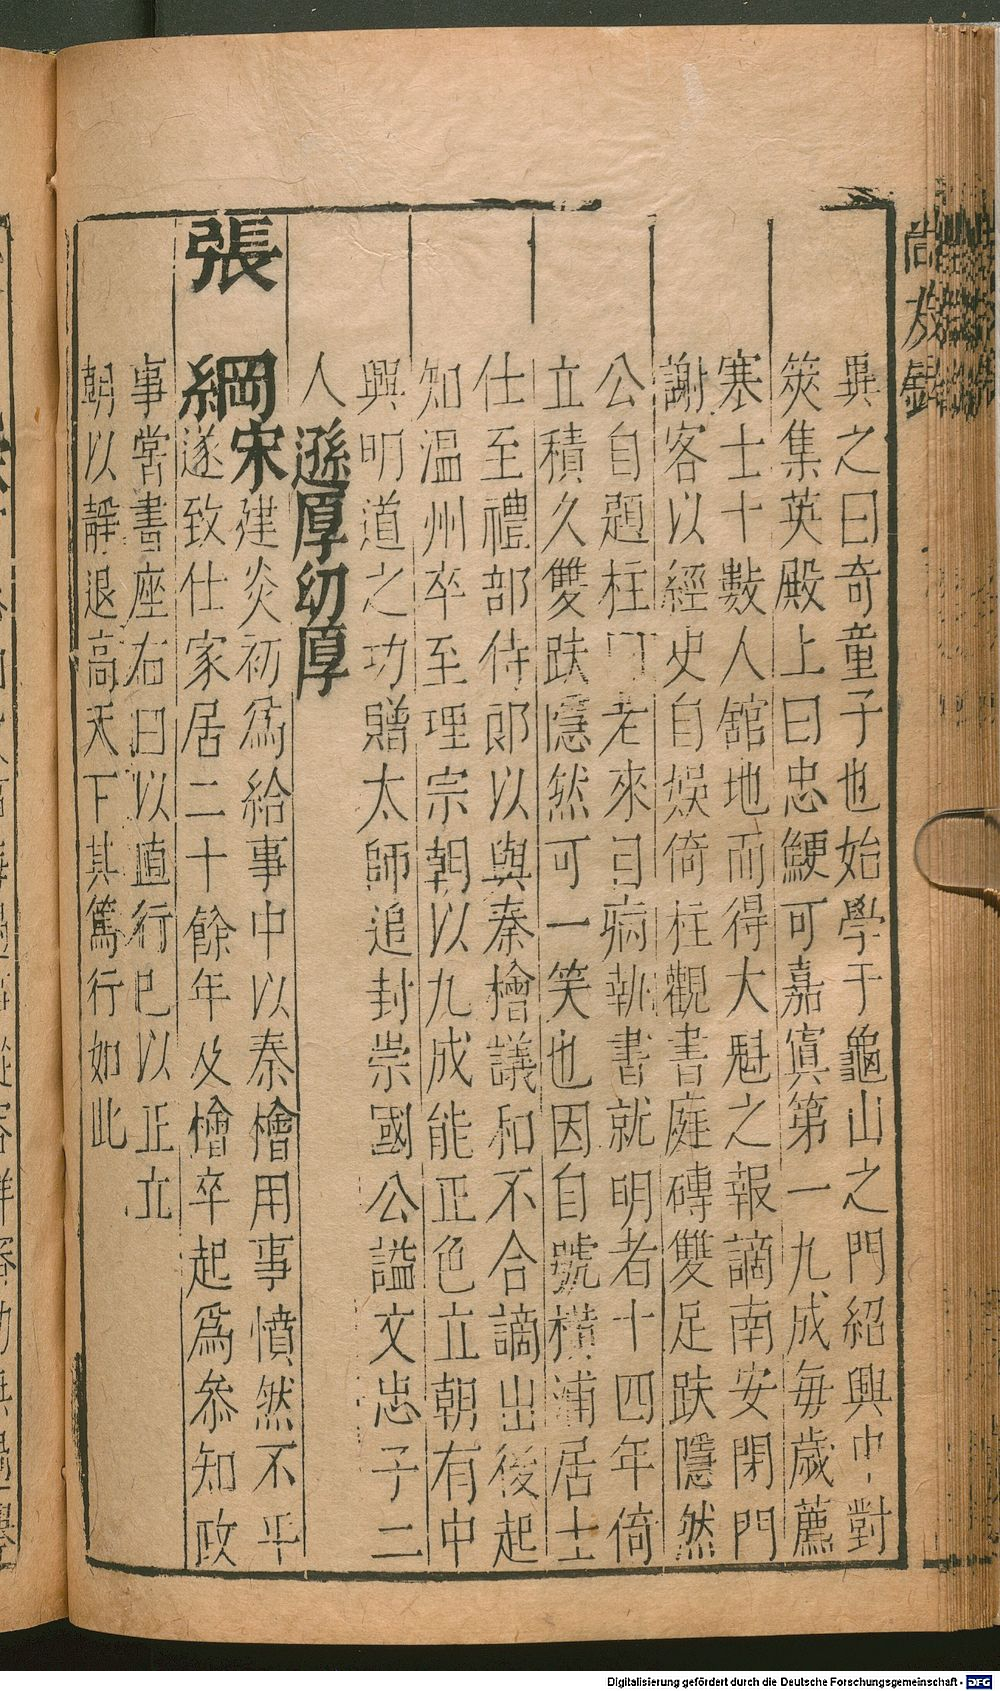 異之曰奇童子也始學于龜山之門紹興中對
筴集英殿上曰忠鯁可嘉寘第一九成毎歲薦
寒士十數人舘地而得大魁之報謫南安閉門
謝客以經史自娯倚柱觀書庭磚雙足趺隱然
公自題柱曰老來目病執書就明者十四年倚
立積久雙趺隱然可一笑也因自號横浦居士
仕至禮部侍郎以與秦檜議和不合謫出後起
知温州卒至理宗朝以九成能正色立朝有中
興明道之功贈太師追封崇國公謚文忠子二
人 遜厚幼厚
張綱宋建炎初爲給事中以秦檜用事憤然不平
遂致仕家居二十餘年及檜卒起爲叅知政
事嘗書座右曰以直行已以正立
朝以靜退高天下其篤行如此
尚友錄
Digitalisierung gefördert durch die Deutsche Forschungsgemeinschaft - DFG